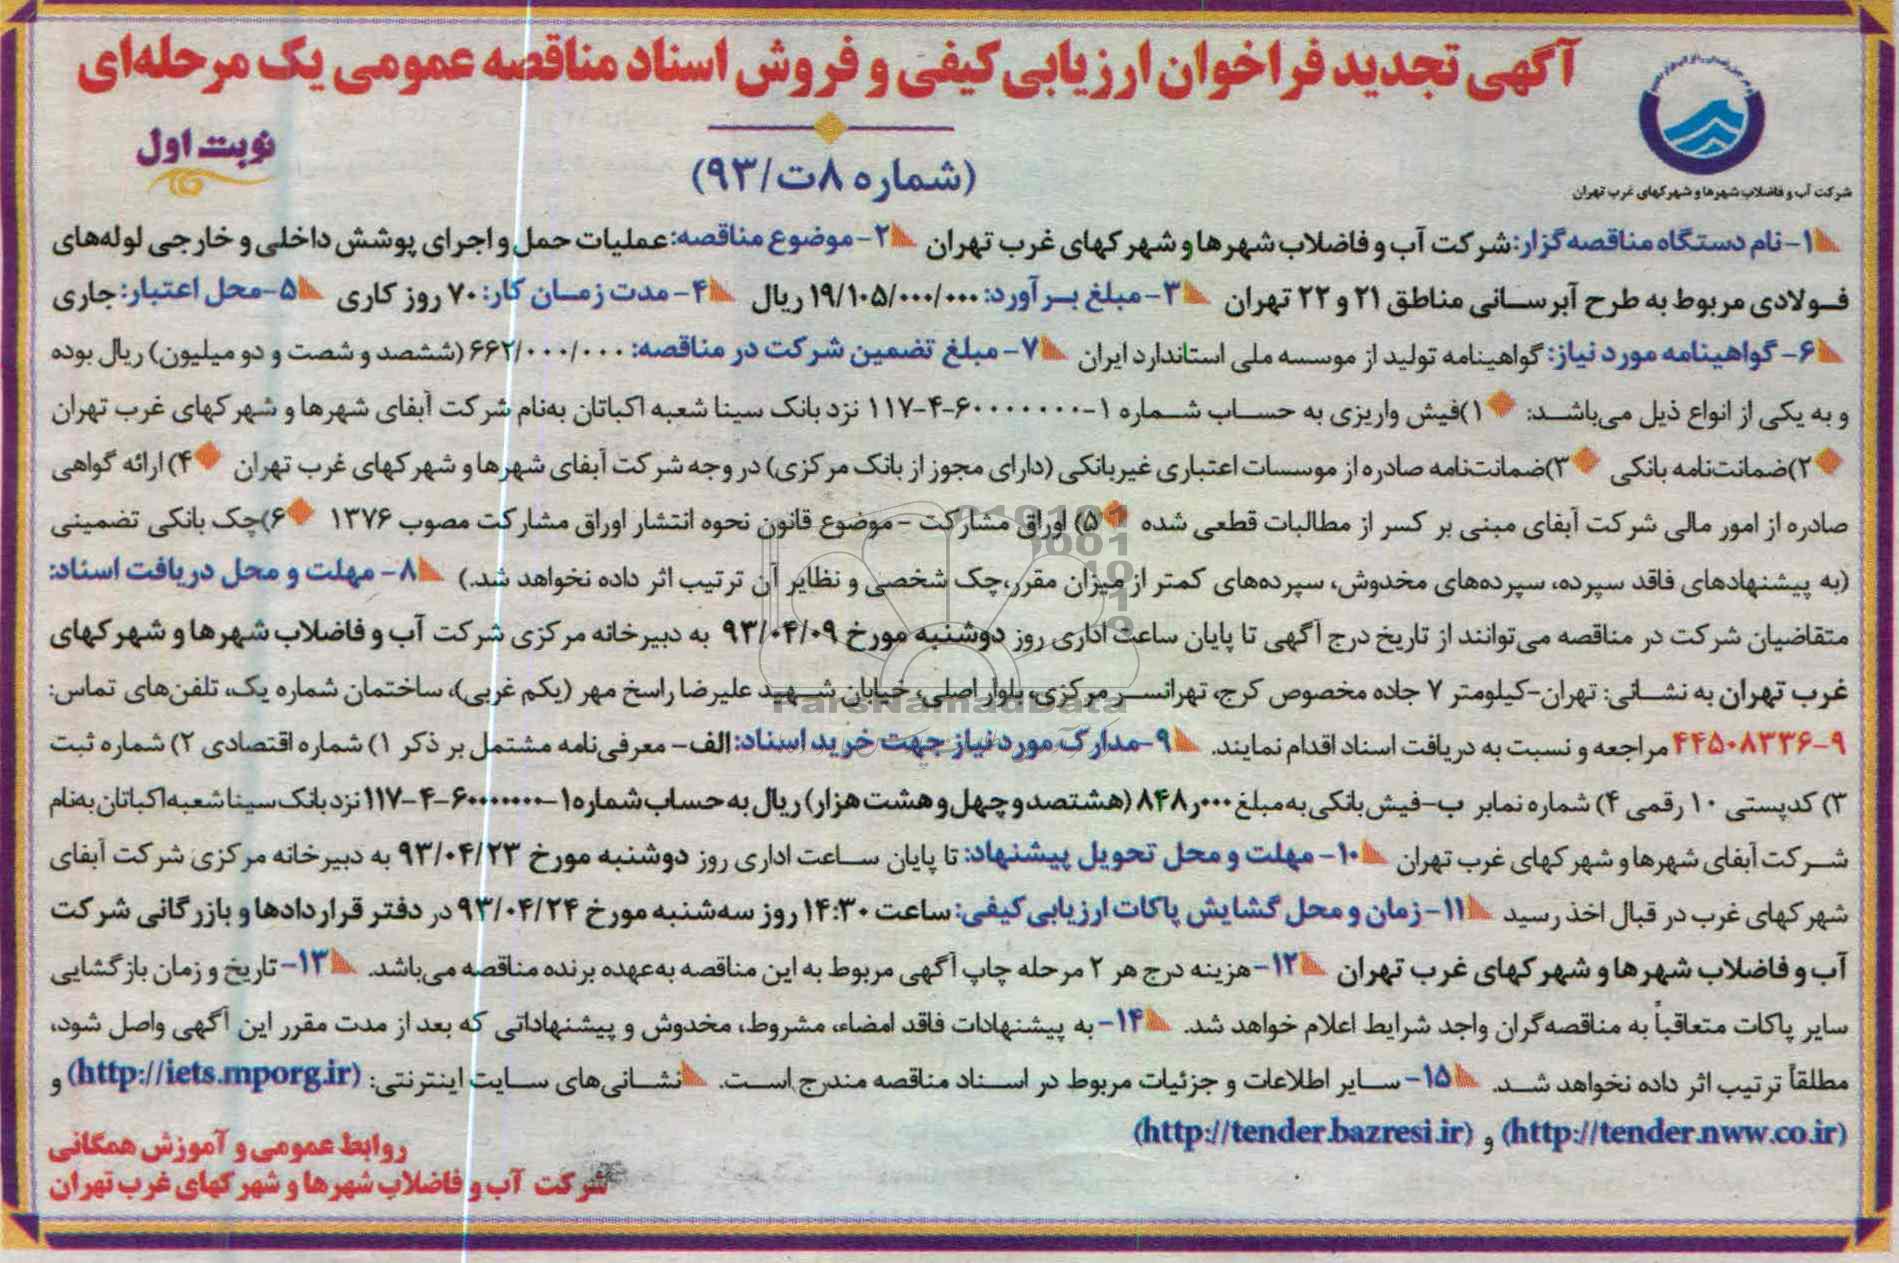 آگهی تجدید فراخوان ارزیابی کیفی و فروش اسناد مناقصه عمومی یک مرحله‌ای
نوبت اول
(شماره ۸ت/۹۳)
شرکت آب و فاضلاب شهرها و شهرکهای غرب تهران
۱- نام دستگاه مناقصه‌گزار: شرکت آب و فاضلاب شهرها و شهرکهای غرب تهران ۲- موضوع مناقصه: عملیات حمل و اجرای پوشش داخلی و خارجی لوله‌های
فولادی مربوط به طرح آبرسانی مناطق ۲۱ و ۲۲ تهران ۳- مبلغ برآورد: ۱۹/۱۰۵/۰۰۰/۰۰۰ ریال ۴- مدت زمان کار: ۷۰ روز کاری ۵- محل اعتبار: جاری
۶- گواهینامه مورد نیاز: گواهینامه تولید از موسسه ملی استاندارد ایران ۷- مبلغ تضمین شرکت در مناقصه: ۶۶۲/۰۰۰/۰۰۰ (ششصد و شصت و دو میلیون) ریال بوده
و به یکی از انواع ذیل می‌باشد: ۱) فیش واریزی به حساب شماره ۱-۶۰۰۰۰۰۰۰-۴-۱۱۷ نزد بانک سینا شعبه اکباتان به‌نام شرکت آبفای شهرها و شهرکهای غرب تهران
۲) ضمانت‌نامه بانکی ۳) ضمانت‌نامه صادره از موسسات اعتباری غیربانکی (دارای مجوز از بانک مرکزی) در وجه شرکت آبفای شهرها و شهرکهای غرب تهران ۴) ارائه گواهی
صادره از امور مالی شرکت آبفای مبنی بر کسر از مطالبات قطعی شده ۵) اوراق مشارکت - موضوع قانون نحوه انتشار اوراق مشارکت مصوب ۱۳۷۶ ۶) چک بانکی تضمینی
(به پیشنهادهای فاقد سپرده، سپرده‌های مخدوش، سپرده‌های کمتر از میزان مقرر، چک شخصی و نظایر آن ترتیب اثر داده نخواهد شد.) ۸- مهلت و محل دریافت اسناد:
متقاضیان شرکت در مناقصه می‌توانند از تاریخ درج آگهی تا پایان ساعت اداری روز دوشنبه مورخ ۹۳/۰۴/۰۹ به دبیرخانه مرکزی شرکت آب و فاضلاب شهرها و شهرکهای
غرب تهران به نشانی: تهران-کیلومتر ۷ جاده مخصوص کرج، تهرانسر مرکزی، بلوار اصلی، خیابان شهید علیرضا راسخ مهر (یکم غربی)، ساختمان شماره یک، تلفن‌های تماس:
۴۴۵۰۸۳۳۶-۹ مراجعه و نسبت به دریافت اسناد اقدام نمایند. ۹- مدارک مورد نیاز جهت خرید اسناد: الف - معرفی‌نامه مشتمل بر ذکر ۱) شماره اقتصادی ۲) شماره ثبت
۳) کدپستی ۱۰ رقمی ۴) شماره نمابر ب- فیش بانکی به مبلغ ۸۴۸ر۰۰۰ (هشتصد و چهل و هشت هزار) ریال به حساب شماره ۱-۶۰۰۰۰۰۰۰-۴-۱۱۷ نزد بانک سینا شعبه اکباتان به‌نام
شرکت آبفای شهرها و شهرکهای غرب تهران ۱۰- مهلت و محل تحویل پیشنهاد: تا پایان ساعت اداری روز دوشنبه مورخ ۹۳/۰۴/۲۳ به دبیرخانه مرکزی شرکت آبفای
شهرکهای غرب در قبال اخذ رسید ۱۱- زمان و محل گشایش پاکات ارزیابی کیفی: ساعت ۱۴:۳۰ روز سه‌شنبه مورخ ۹۳/۰۴/۲۴ در دفتر قراردادها و بازرگانی شرکت
آب و فاضلاب شهرها و شهرکهای غرب تهران ۱۲- هزینه درج هر ۲ مرحله چاپ آگهی مربوط به این مناقصه به‌عهده برنده مناقصه می‌باشد. ۱۳- تاریخ و زمان بازگشایی
سایر پاکات متعاقباً به مناقصه‌گران واجد شرایط اعلام خواهد شد. ۱۴- به پیشنهادات فاقد امضاء، مشروط، مخدوش و پیشنهاداتی که بعد از مدت مقرر این آگهی واصل شود،
مطلقاً ترتیب اثر داده نخواهد شد. ۱۵- سایر اطلاعات و جزئیات مربوط در اسناد مناقصه مندرج است. نشانی‌های سایت اینترنتی: (http://iets.mporg.ir) و
(http://tender.nww.co.ir) و (http://tender.bazresi.ir)
روابط عمومی و آموزش همگانی
شرکت آب و فاضلاب شهرها و شهرکهای غرب تهران
ParsNamadData